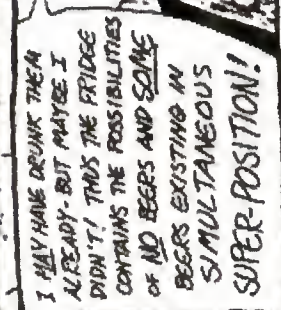 I MAY HAVE DRUNK THEM
ALREADY - BUT MAYBE I
DIDN'T! THUS THE FRIDGE
CONTAINS THE POSSIBILITIES
OF NO BEERS AND SOME
BEERS EXISTING IN
SIMULTANEOUS
SUPER-POSITION!